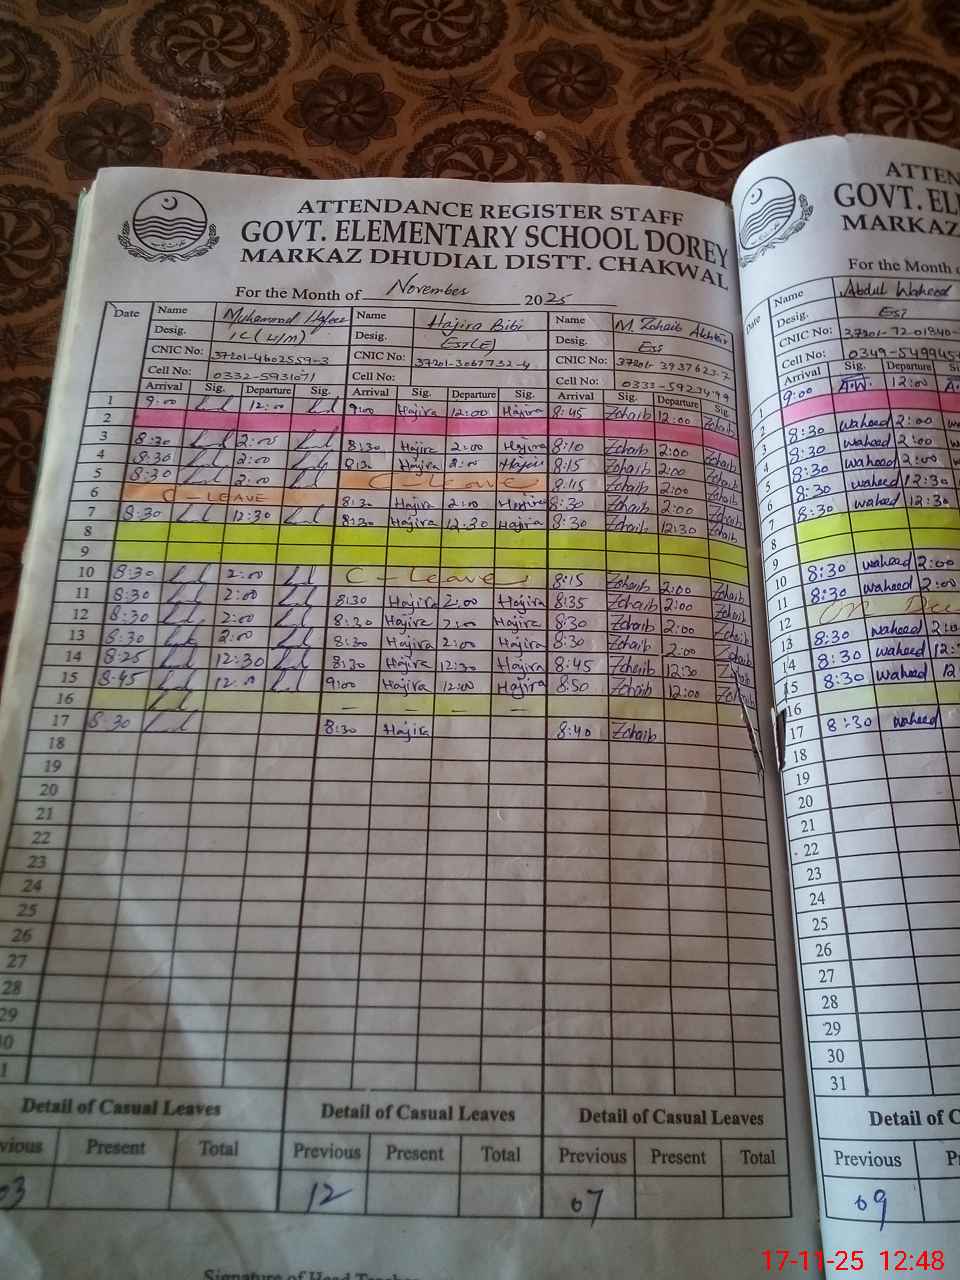 ATTENDANCE REGISTER STAFF
GOVT. ELEMENTARY SCHOOL DOREY
MARKAZ DHUDIAL DISTT. CHAKWAL
For the Month of November 2025
Date Name Muhammad Hafeez Name Hajira Bibi Name M. Zohaib Akhtar
Desig. Desig. EST(E) Desig. Est
CNIC No: 37201-4602559-3 CNIC No: 37201-3067732-4 CNIC No: 37201-3937623-7
Cell No: 0332-5931071 Cell No: Cell No: 0333-5923499
Arrival Sig. Departure Sig. Arrival Sig. Departure Sig. Arrival Sig. Departure Sig.
1 9:00 12:00 9:00 Hajira 12:00 Hajira 8:45 Zohaib 12:00 Zohaib
2
3 8:30 2:00 8:30 Hajira 2:00 Hajira 8:10 Zohaib 2:00 Zohaib
4 8:30 2:00 8:30 Hajira 2:00 Hajira 8:15 Zohaib 2:00 Zohaib
5 8:30 2:00 C-Leave 8:15 Zohaib 2:00 Zohaib
6 C-LEAVE 8:30 Hajira 2:00 Hajira 8:30 Zohaib 2:00 Zohaib
7 8:30 12:30 8:30 Hajira 12:30 Hajira 8:30 Zohaib 12:30 Zohaib
8
9
10 8:30 2:00 C-Leave 8:15 Zohaib 2:00 Zohaib
11 8:30 2:00 8:30 Hajira 2:00 Hajira 8:35 Zohaib 2:00 Zohaib
12 8:30 2:00 8:30 Hajira 2:00 Hajira 8:30 Zohaib 2:00 Zohaib
13 8:30 2:00 8:30 Hajira 2:00 Hajira 8:30 Zohaib 2:00 Zohaib
14 8:25 12:30 8:30 Hajira 12:30 Hajira 8:45 Zohaib 12:30 Zohaib
15 8:45 12:00 9:00 Hajira 12:00 Hajira 8:50 Zohaib 12:00 Zohaib
16 — — — —
17 8:30 8:30 Hajira 8:40 Zohaib
18
19
20
21
22
23
24
25
26
27
28
29
0
1
Detail of Casual Leaves Detail of Casual Leaves Detail of Casual Leaves
vious Present Total Previous Present Total Previous Present Total
03 12 07
Signature of Head Teacher
ATTEN
GOVT. EL
MARKAZ
For the Month
Date Name Abdul Waheed
Desig. Est
CNIC No: 37201-7201840-
Cell No: 0349-549945
Arrival Sig. Departure
1 9:00 A.W. 12:00
2 8:30 waheed 2:00
3 8:30 waheed 2:00
4 8:30 waheed 2:00
5 8:30 waheed 12:30
6 8:30 waheed 12:30
7
8
9
10 8:30 waheed 2:00
11 8:30 waheed 2:00
12 On
13 8:30 waheed 2:00
14 8:30 waheed 12:
15 8:30 waheed 12
16
17 8:30 waheed
18
19
20
21
22
23
24
25
26
27
28
29
30
31
Detail of C
Previous P
09
17-11-25 12:48